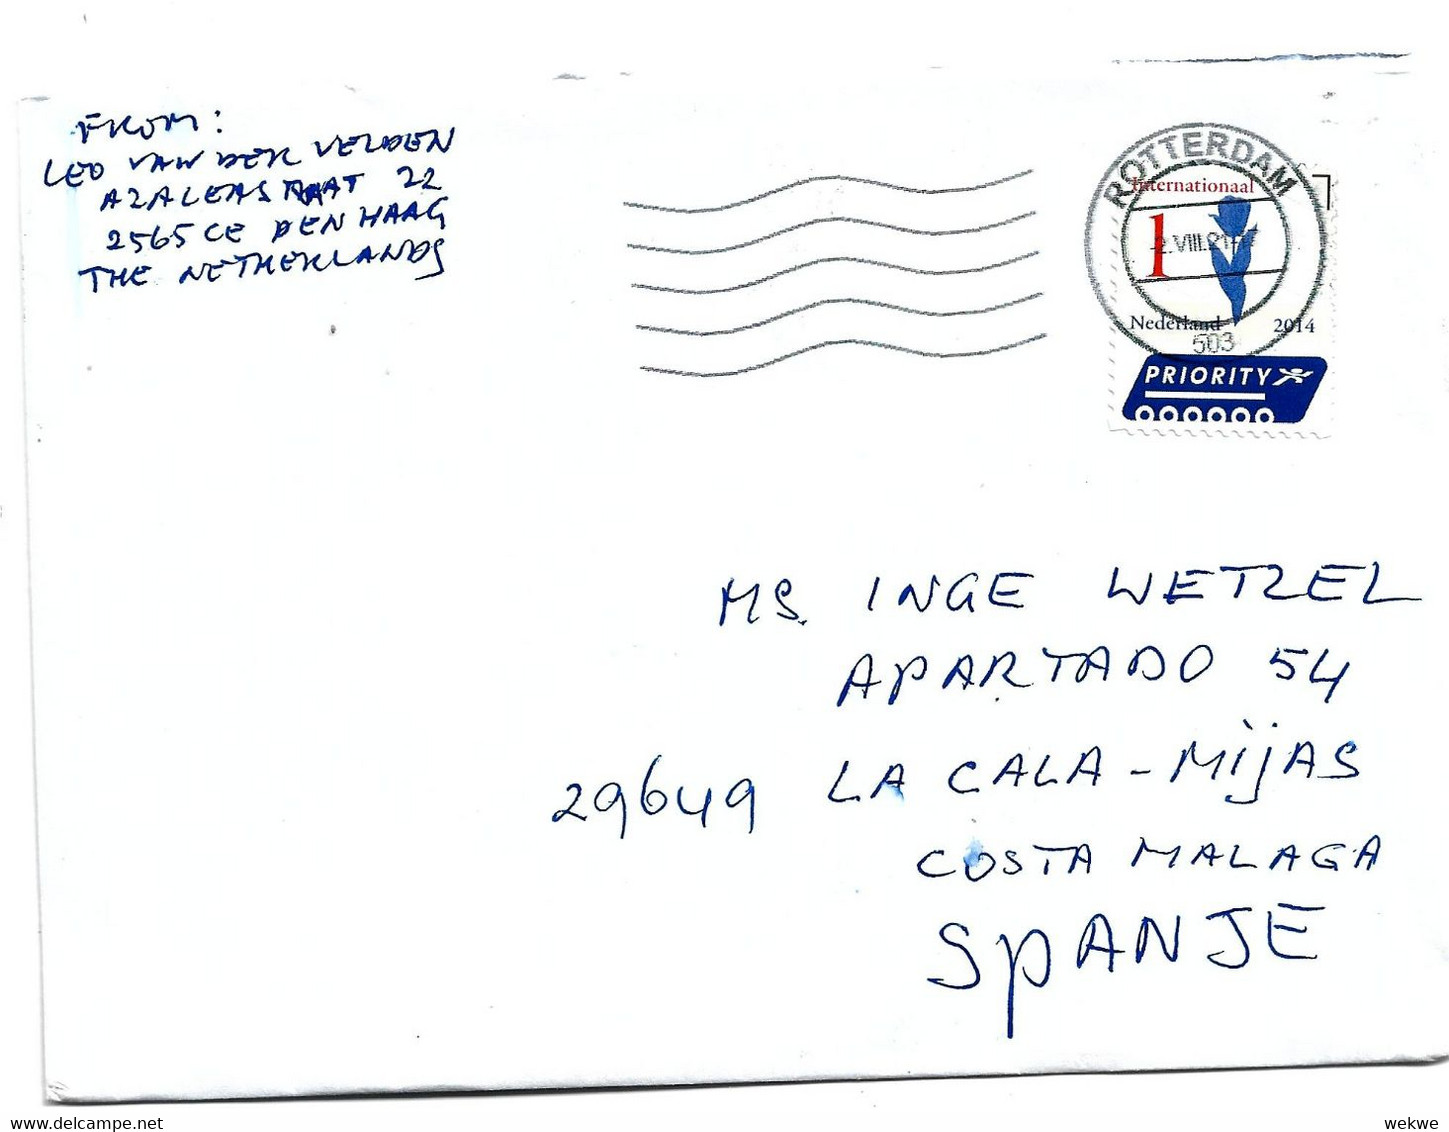 FROM:
LEO VAN DER VELDEN
AZALEASTRAAT 22
2565 CE DEN HAAG
THE NETHERLANDS
ROTTERDAM
Internationaal
1
2.VIII.21
Nederland 2014
503
PRIORITY
MS. INGE WETZEL
APARTADO 54
29649 LA CALA - MijAS
COSTA MALAGA
SPANJE
wekwe